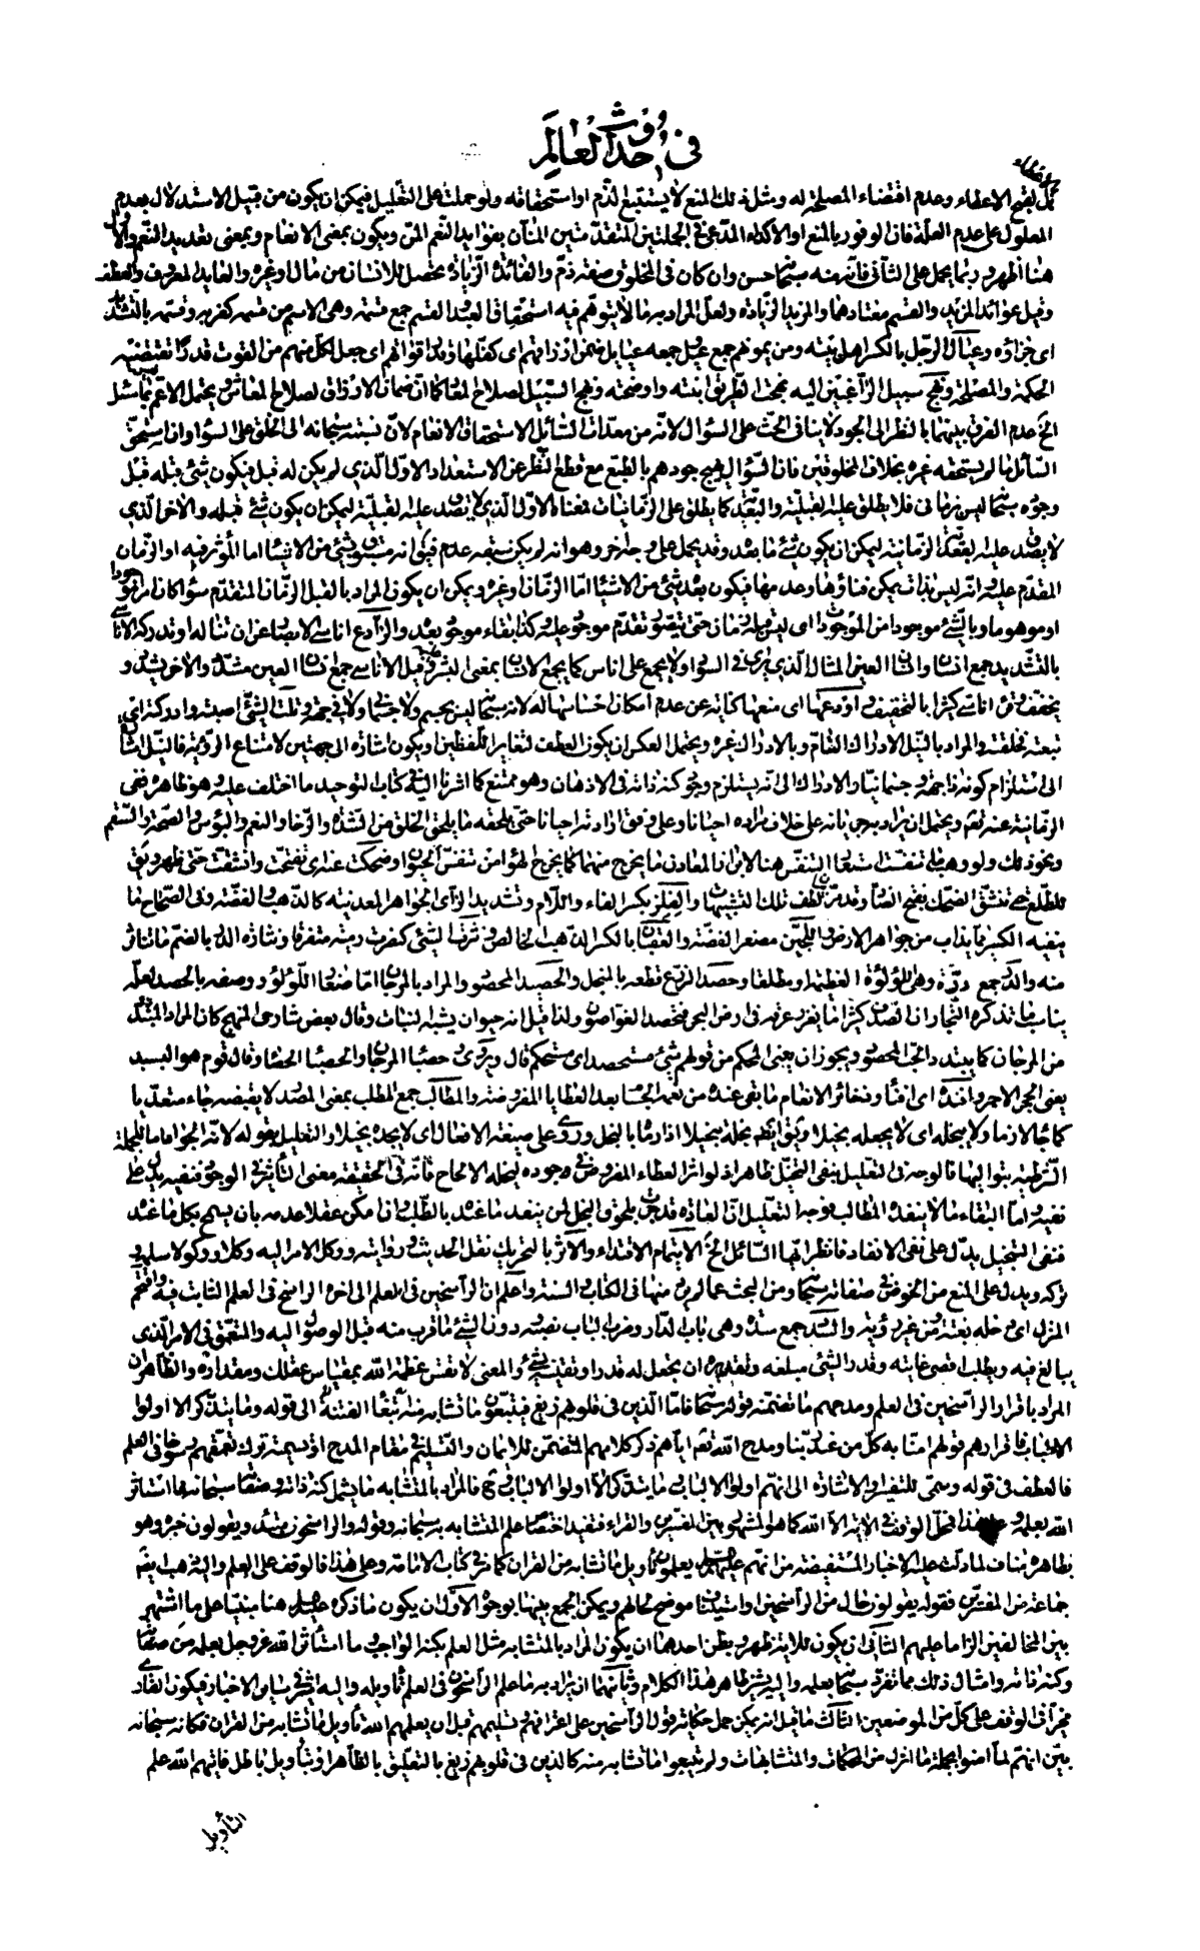 في حدوث العالم
كل لقبح الاعطاء وعدم اقتضاء المصلحة له ومثل ذلك المنع لا يستتبع الذم او استحقاقه ولو حملت على التعليل فيمكن ان يكون من قبيل الاستدلال بعدم
المعلول على عدم العلة فان الوفور بالمنع او الاكداء المدعى في الجملتين المتقدمتين المنان بفوايد النعم المن ويكون بمعنى الانعام وبمعنى تعديد النعم والاول
هنا اظهر وربما يحمل على الثاني فان منه سبحانه حسن وان كان في المخلوق صفة ذم والفائدة الزيادة تحصل للانسان من مال او غيره والعايد المعروف والعطف
وقيل عوائد المزيد والقسم معتادهما والمزيد الزيادة ولعل المراد به ما لا يتوهم فيه استحقاق العبد والقسم جمع قسمة وهي الاسم من قسمه كضربه وقسمه بالتشديد
اي جزاؤه وعيال الرجل بالكسر اهل بيته ومن يمونهم جمع عيل وجمعه عيايل ضمن ارزاقهم اي كفلها وقدر اقواتهم اي جعل لكل منهم من القوت قدرا تقتضيه
الحكمة والمصلحة ونهج سبيل الراغبين اليه نهجت الطريق ابنته واوضحته ونهج السبيل لصلاح المعاد كما ان ضمان الارزاق لصلاح المعاش ويحتمل الاعم بما سئل
الخ عدم الفرق بينهما بالنظر الى الجود لا ينافي الحث على السؤال لانه من معدات السائل لاستحقاق الانعام لان نسبته سبحانه الى الخلق على السواء وان استحق
السائل ما لم يستحقه غيره بخلاف المخلوقين فان السؤال يهيج جودهم بالطبع مع قطع النظر عن الاستعداد الاول الذي لم يكن له قبل فيكون شيء قبله قيل
وجوده سبحانه ليس بزماني فلا يطلق عليه القبلية والبعدية كما يطلق على الزمانيات فمعناه الاول الذي لا يصدق عليه القبلية ليمكن ان يكون شيء قبله والاخر الذي
لا يصدق عليه البعدية الزمانية ليمكن ان يكون شيء ما بعده وقد يحمل على وجه اخر وهو انه لم يكن سبقه عدم فيقال انه مسبوق بشيء من الاشياء اما المؤثر فيه او الزمان
المقدم عليه وانه ليس بذات يمكن فناؤها وعدمها فيكون بعده شيء من الاشياء اما الزمان او غيره ويمكن ان يكون المراد بالقبل الزمان المتقدم سواء كان موجودا
او موهوما وبالشيء موجودا من الموجودات اي ليس قبله زمان حتى يتصور تقدم موجود عليه وكذا بقاء موجود بعده والرادع اناسي الابصار عن ان تناله او تدركه الاناسي
بالتشديد جمع انسان وانسان العين المثال الذي يرى في السواد ولا يجمع على اناس كما يجمع الانسان بمعنى البشر وقيل الاناسي جمع انسان العين مشدد والاخر يشدد و
يخفف وقرئ اناسي كثيرا بالتخفيف وردعها اي منعها كناية عن عدم امكان احساسها له لانه سبحانه ليس بجسم ولا جسماني ولا في جهة ونلت الشيء اصبته وادركته اي
تبعته فلحقته والمراد بالنيل الادراك التام وبالادراك غيره ويحتمل العكس وان يكون العطف لتغاير اللفظين او يكون اشارة الى جهتين لامتناع الرؤية فالنيل اشارة
الى استلزام كونه ذا جهة وجسمانيا والادراك الى انه يستلزم وجود كنه ذاته في الاذهان وهو ممتنع كما اشرنا اليه في كتاب التوحيد ما اختلف عليه دهر ظاهره نفي
الزمانية عنه تعالى ويحتمل ان يراد به جريانه على خلاف مراده احيانا وعلى وفق ارادته احيانا حتى يلحقه ما يلحق الخلق من الشدة والرخاء والنعم والبؤس والصحة والسقم
ونحو ذلك ولو وهب ما تنفست استعارة التنفس هنا لابراز المعادن ما يخرج منها كما يخرج الهواء من تنفس الحيوان وضحكت عنه اي تفتحت وانشقت حتى ظهر ويقال
للطلع حين تنشق الضحك بفتح الضاد وقد مر لطف تلك التشبيهات والفلز بكسر الفاء واللام وتشديد الزاي الجواهر المعدنية كالذهب والفضة وفي الصحاح ما
ينفيه الكير مما يذاب من جواهر الارض واللجين مصغرا الفضة والعقيان بالكسر الذهب الخالص ونثرت الشيء كضربت رميته متفرقا ونثارة الدر بالضم ما تناثر
منه والدر جمع درة وهي اللؤلؤة العظيمة او مطلقا وحصد الزرع قطعه بالمنجل والحصيد المحصود والمراد بالمرجان اما صغار اللؤلؤ ووصفه بالحصد لعله
يناسب ما تذكره التجار ان الصدف كثيرا ما يغرز عرقه في ارض البحر فيحصده الغواصون ولذا قيل انه حيوان يشبه النبات وقال بعض شارحي النهج كان المراد المتبدد
من المرجان كما يبدد الحب المحصود ويجوز ان يعنى المحكم من قولهم شيء مستحصد اي مستحكم قال ويروى حصباء المرجان والحصباء الحصا وقال قوم هو البسد
يعني الحجر الاحمر وانفده اي افناه وذخائر الانعام ما بقي عنده من نعمه الجسام بعد العطايا المفروضة والمطالب جمع المطلب بمعنى المصدر لا يغيضه جاء متعديا
كما جاء لازما ولا يبخله اي لا يجعله بخيلا ويقال ايضا بخله تبخيلا اذا رماه بالبخل وروي على صيغة الافعال اي لا يجده بخيلا والتعليل بقوله لانه الجواد اما للجملة
الشرطية بتواليها فالوجه في التعليل بنفي التبخيل ظاهر اذ لو اثر العطاء المفروض في وجوده لبخله الالحاح فانه في الحقيقة معنى التأثير في الوجود فنفيه يدل على
نفيه واما البقاء ما لا ينفده المطالب فوجه التعليل ان العادة قد جرت بلحوق البخل لمن ينفد ما عنده بالطلب وان امكن عقلا عدمه بان يسمح بكل ما عنده
فنفي التبخيل يدل على نفي الانفاد فانظر ايها السائل الخ الايتمام الاقتداء والاثر بالتحريك نقل الحديث وروايته ووكل الامر اليه وكلا ووكولا سلمه و
تركه ويدل على المنع من الخوض في صفاته سبحانه ومن البحث عما لم يرد منها في الكتاب والسنة واعلم ان الراسخين في العلم الى اخره الراسخ في العلم الثابت فيه واقتحم
المنزل اي دخله بغتة ومن غير روية والسدد جمع سدة وهي باب الدار وضرب الباب نصبه دون الشيء ما قرب منه قبل الوصول اليه والمتعمق في الامر الذي
يبالغ فيه ويطلب اقصى غايته وقدر الشيء مبلغه وتقديره ان يجعل له قدرا ويقيسه بشيء والمعنى لا تقس عظمة الله بمقياس عقلك ومقداره والظاهر ان
المراد باقرار الراسخين في العلم ومدحهم ما تضمنه قوله سبحانه فاما الذين في قلوبهم زيغ فيتبعون ما تشابه منه ابتغاء الفتنة الى قوله وما يذكر الا اولوا
الالباب فاقرارهم قولهم امنا به كل من عند ربنا ومدح الله تعالى اياهم ذكر كلامهم المتضمن للايمان والتسليم في مقام المدح او تسمية ترك تعمقهم رسوخا في العلم
فالعطف في قوله وسمى للتفسير او الاشارة الى انهم اولوا الالباب بقوله وما يذكر الا اولوا الالباب وح فالمراد بالمتشابه ما يشمل كنه ذاته وصفاته سبحانه مما استأثر
الله بعلمه وعلى هذا فمحل الوقف في الاية الا الله كما هو المشهور بين المفسرين والقراء فيفيد اختصاص علم المتشابه به سبحانه وقوله والراسخون مبتدأ ويقولون خبره وهو
بظاهره مناف لما دلت عليه الاخبار المستفيضة من انهم عليهم السلم يعلمون تأويل ما تشابه من القران كما مر في كتاب الامامة وعلى هذا فالوقف على العلم واليه ذهب ايضا
جماعة من المفسرين فقوله يقولون حال من الراسخين او استيناف موضح لحالهم ويمكن الجمع بينها بوجوه الاول ان يكون ما ذكره عليه السلم هنا مبنيا على ما اشتهر
بين المخالفين الزاما عليهم الثاني ان يكون للاية ظهر وبطن احدهما ان يكون المراد بالمتشابه مثل العلم بكنه الواجب وما استأثر الله عز وجل بعلمه من صفاته
وكنه ذاته وامثال ذلك مما تفرد سبحانه بعلمه واليه يشير ظاهر هذا الكلام وثانيهما ان يراد به ما علم الراسخون في العلم تأويله واليه اشير في ساير الاخبار فيكون القارئ
مخيرا في الوقف على كل من الموضعين الثالث ما قيل انه يمكن حمل حكاية قول الراسخين على اعترافهم وتسليمهم قبل ان يعلمهم الله تأويل ما تشابه من القران فكانه سبحانه
بين انهم لما امنوا بجملة ما انزل من المحكمات والمتشابهات ولم يتبعوا ما تشابه منه كالذين في قلوبهم زيغ بالتعليق بالظاهر او بتأويل باطل فاتيهم الله علم
التأويل